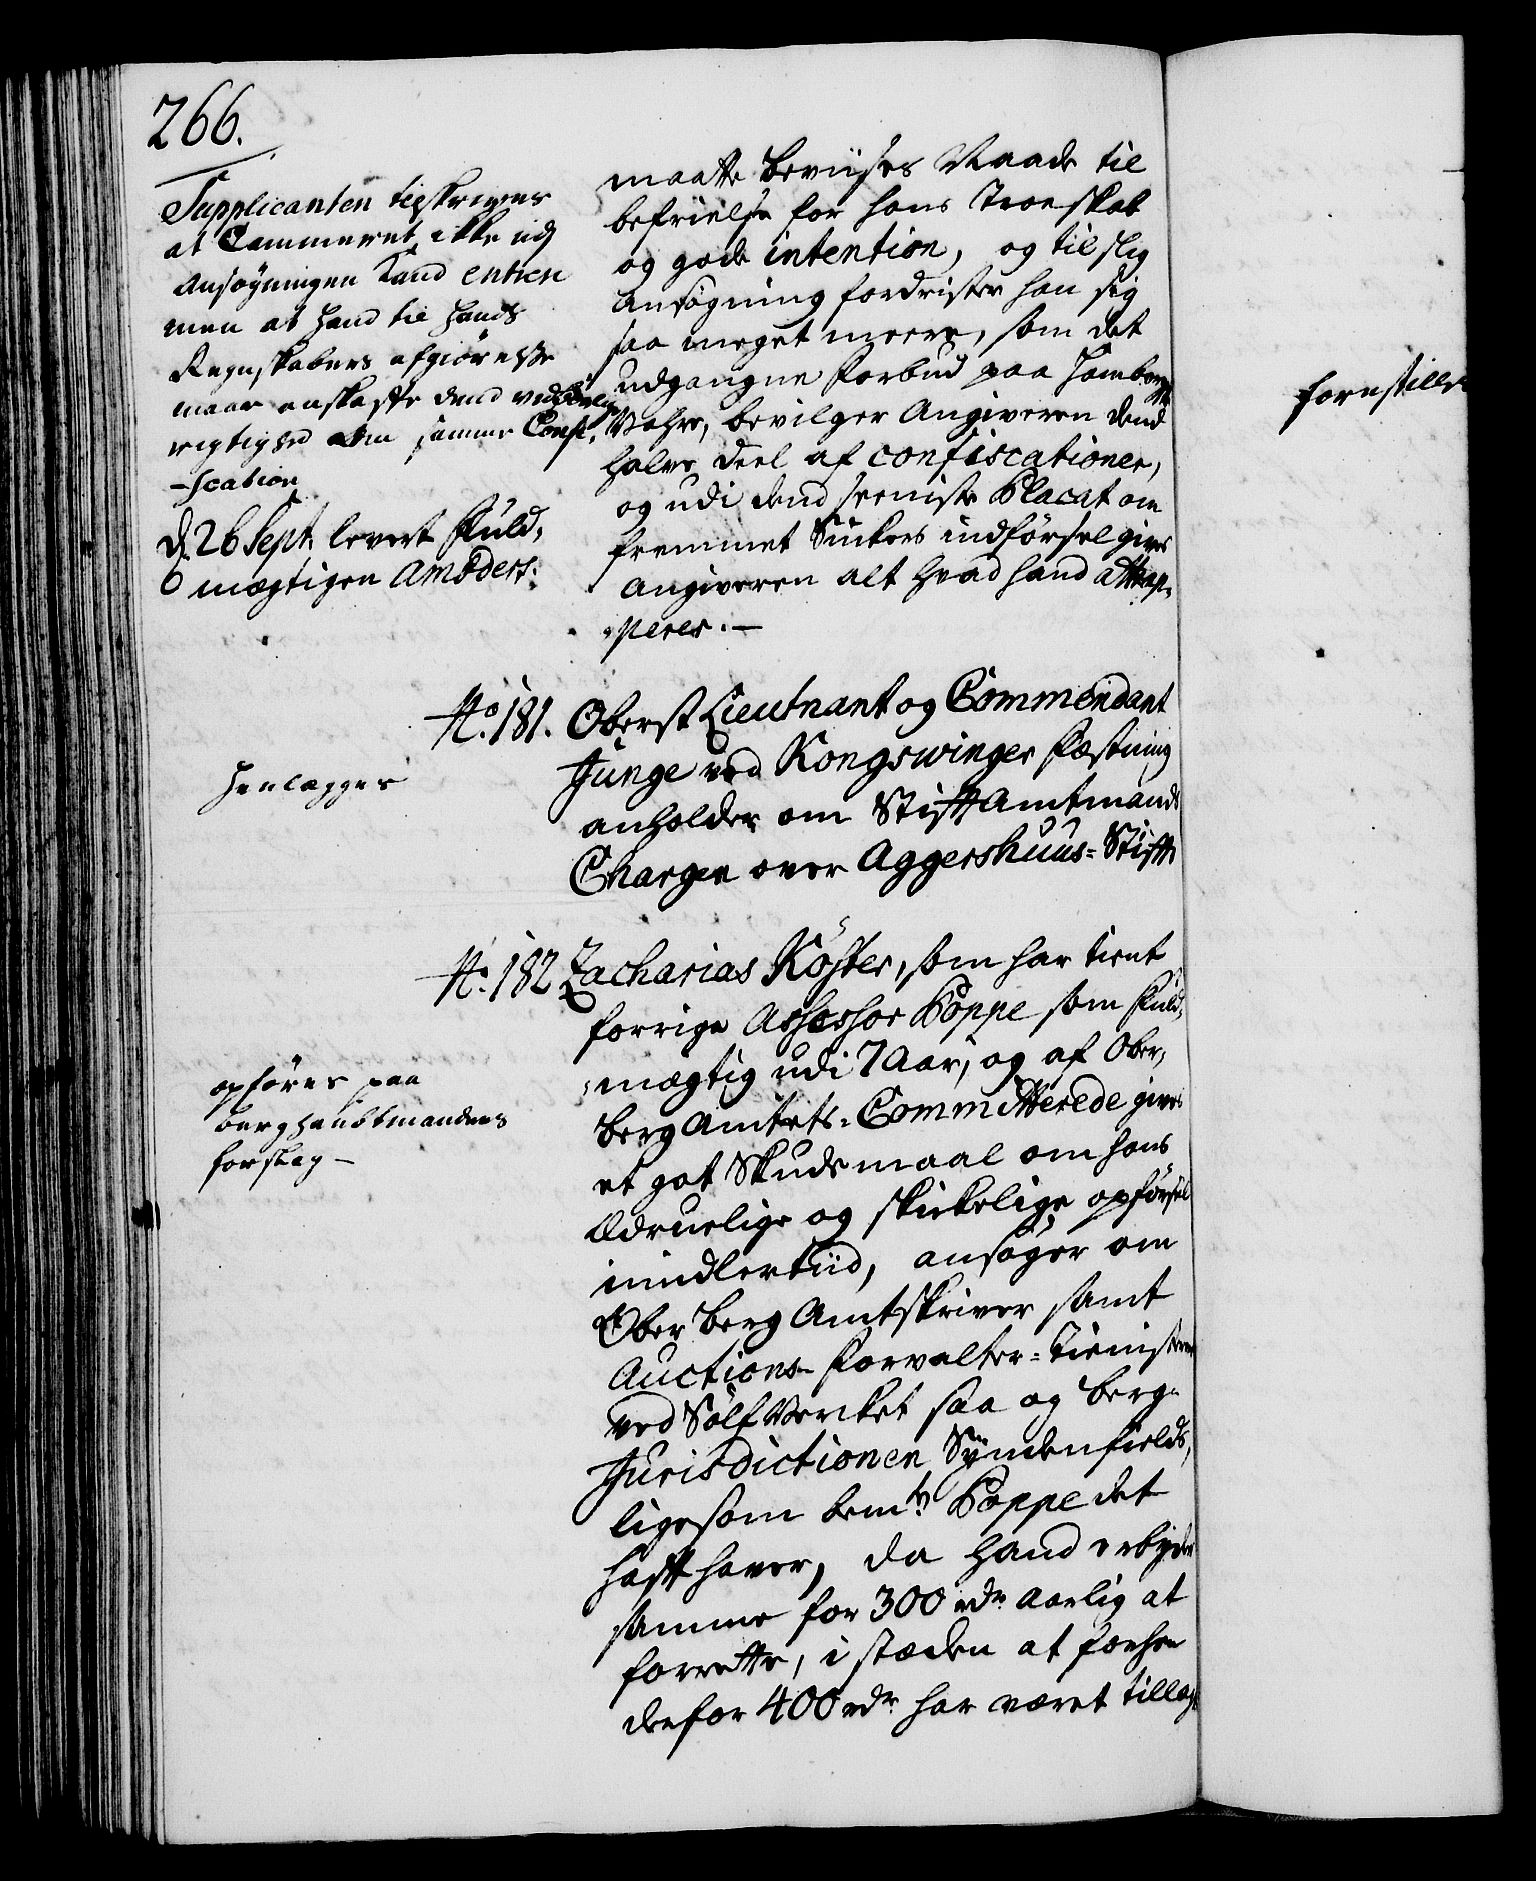 266.
Supplicanten tilskrives
at Cammeret ikke udj
Ansøgningen kand entrere
men at hand til hands
Regnskabers afgiørelse
maae anskaffe dend vedbørlige
rigtighed om samme Confi-
-scation
d. 26 Sept. levert Fuld-
mægtigen Amøders.
maatte beviises Naade til
befrielse for hans Troeskab
og gode intention, og til slig
ansøgning fordrister han sig
saa meget meere, som det
udgangne Forbud paa Hamborger
Vahre, bevilger Angiveren dend
halve deel af confiscationer,
og udi dend seeniste Placat om
fremmet Suckers indførsel gives
Angiveren alt hvad hand attrap-
-perer. —
No. 181. Oberst Lieutnant og Commendant
Junge ved Kongswinger Fæstning
anholder om Stift Amtmands
Chargen over Aggershuus-Stift
Henlægges
No. 182 Zacharias Köster, som har tient
forrige Assessor Poppe som Fuld-
-mægtig udi 7 Aar, og af Ober-
berg Amtets-Committerede gives
et got Skudsmaal om hans
Ædruelige og skickelige opførsel
imidlertiid, ansøger om
Ober berg Amtskriver samt
Auctions-Forvalter-Tienisten
ved Sølf Vercket saa og berg-
Jurisdictionen Syndenfields,
ligesom bemte Poppe det
haft haver, da hand erbyder
samme for 300 rdr aarlig at
forrette, i stæden at forhen
derfor 400 rdr har været tillagt
opføres paa
berghaubtmandens
forslag —
forestille